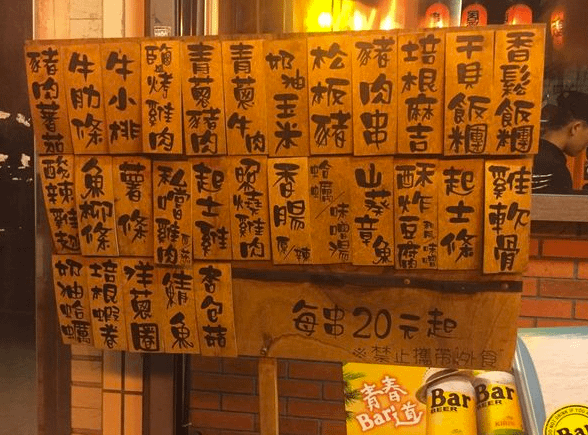 豬肉蕃茄
牛肋條
牛小排
鹽烤雞肉
青蔥豬肉
青蔥牛肉
奶油玉米
松板豬
豬肉串
培根麻吉
干貝飯糰
香鬆飯糰
酸辣雞翅
魚柳條
薯條
私嚐雞肉
起士雞
照燒雞肉
香腸 原/辣
蛤蠣/味噌湯
山葵章魚
酥炸豆腐
起士條
雞軟骨
奶油蛤蠣
培根蝦卷
洋蔥圈
鯖魚
杏包菇
每串20元起
※禁止攜帶外食
青春
Bar道
Bar
BEER
Bar
BEER
Bar